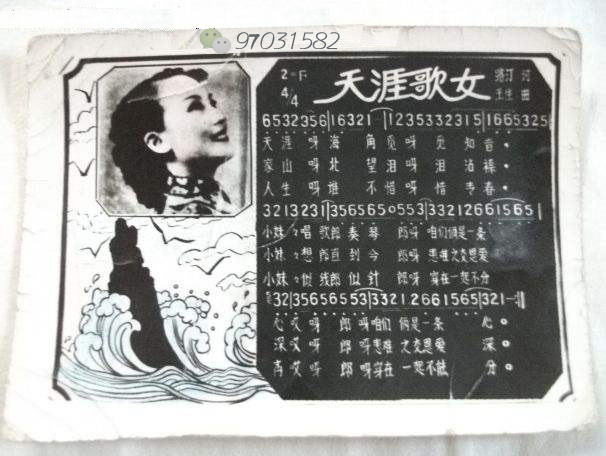 97031582
天涯歌女
4/4
6532356|16321|12353323 15|1665325|
天涯呀海角觅呀觅知音。
家山呀北望泪呀泪沾襟。
人生呀谁不惜呀惜青春。
3213231|356565055 3|3321266156 5|
小妹〻唱歌郎奏琴郎呀咱们俩是一条
小妹〻想郎直到今郎呀患难之交恩爱
小妹〻似线郎似针郎呀穿在一起不分
32|35656553|33212661565|321—:‖
心哎呀郎呀咱们俩是一条心。
深哎呀郎呀患难之交恩爱深。
哎呀郎呀穿在一起不能分。